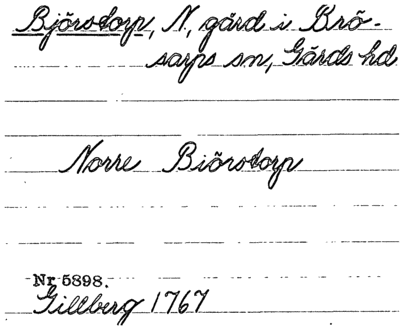 Björstorp, N., gård i Brö-
sarps sn, Gärds hd
Norre Biörstorp
Nr 5898.
Gillberg 1767